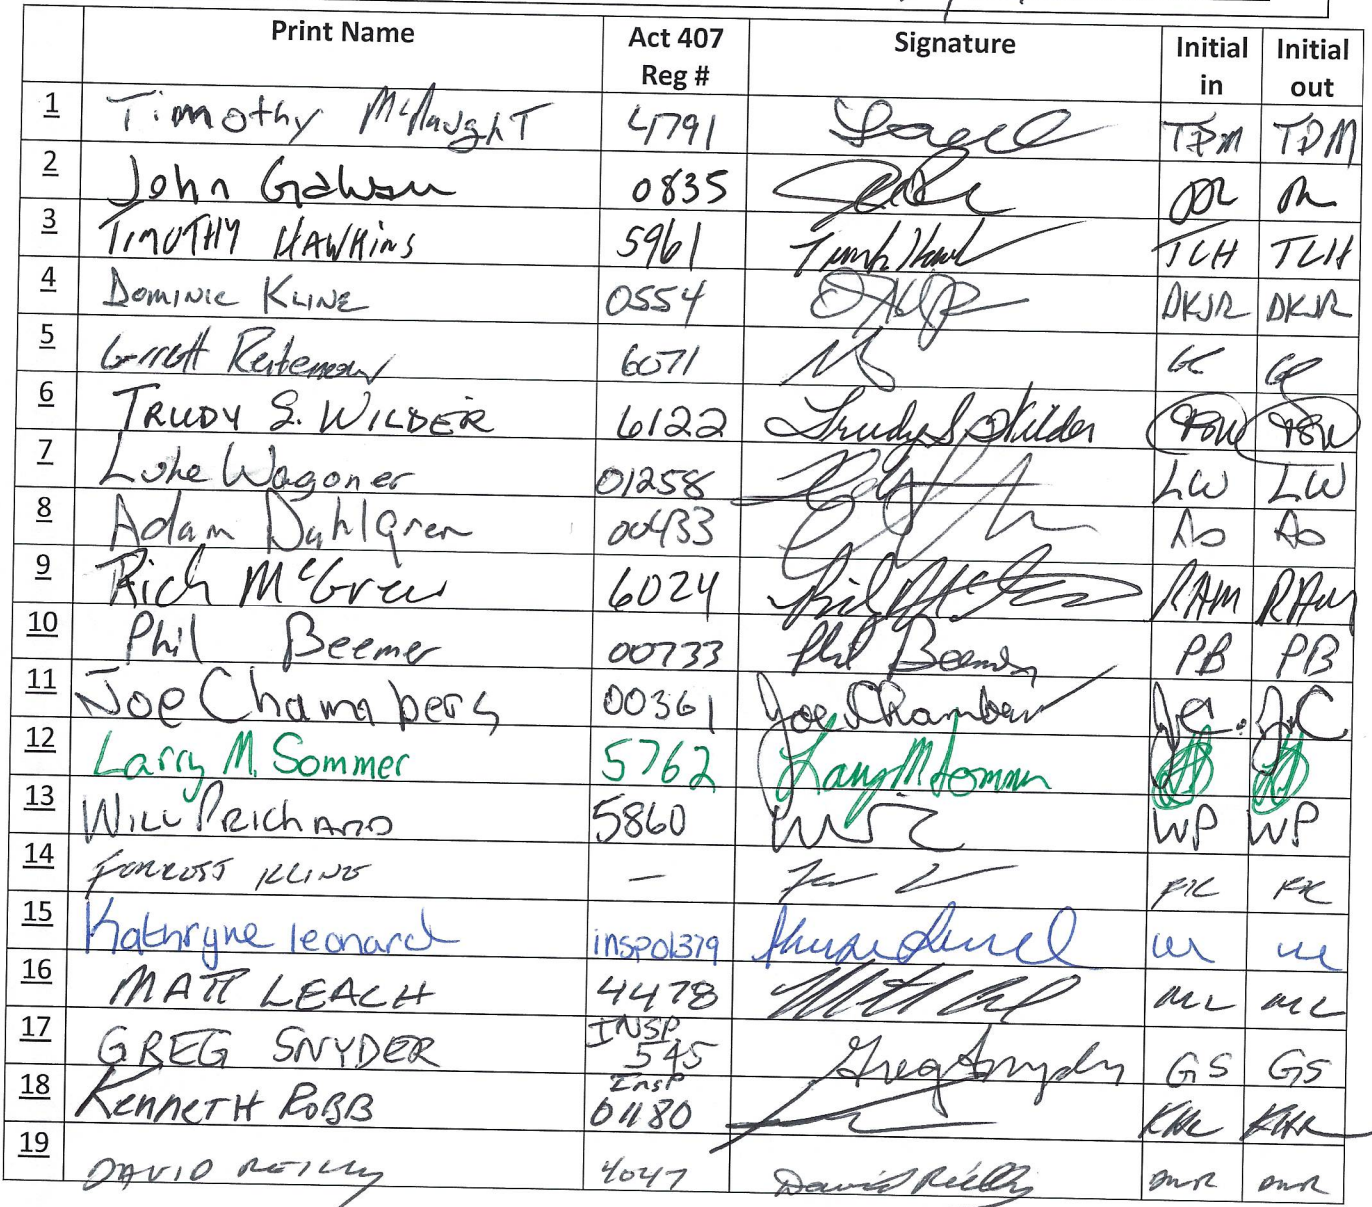 Print Name Act 407 Reg # Signature Initial in Initial out
1 Timothy McNaughT 4791 TPM TPM
2 John 0835
3 TIMOTHY HAWKINS 5961 TCH TCH
4 DOMINIC KLINE 0554 DKJR DKJR
5 Garrett 6071
6 TRUDY S. WILDER 6122 Trudy S. Wilder TSW TSW
7 Luke Wagoner 01258 LW LW
8 Adam Dahlgren 00433 AD AD
9 Rich McGrew 6024 RAM RAM
10 Phil Beemer 00733 Phil Beemer PB PB
11 Joe Chambers 00361 Joe Chambers JC. JC
12 Larry M. Sommer 5762 Larry M Sommer
13 WILL PRICHARD 5860 WP WP
14 FORREST KLINE — FK FK
15 Kathryne leonard insp01379
16 MATT LEACH 4478 ML ML
17 GREG SNYDER INSP 545 Greg Snyder GS GS
18 KENNETH ROBB Insp 01180
19 DAVID REILLY 4047 David Reilly DMR DMR